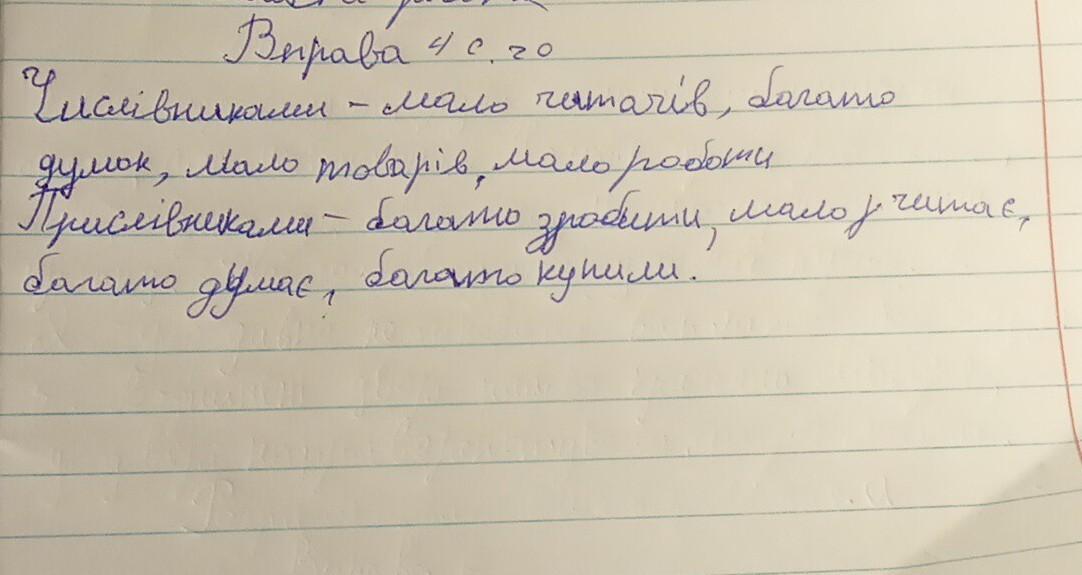 Вправа 4 с. 20
Числівниками – мало читачів, багато
думок, мало товарів, мало роботи
Прислівниками – багато зробити, мало читає,
багато думає, багато купили.